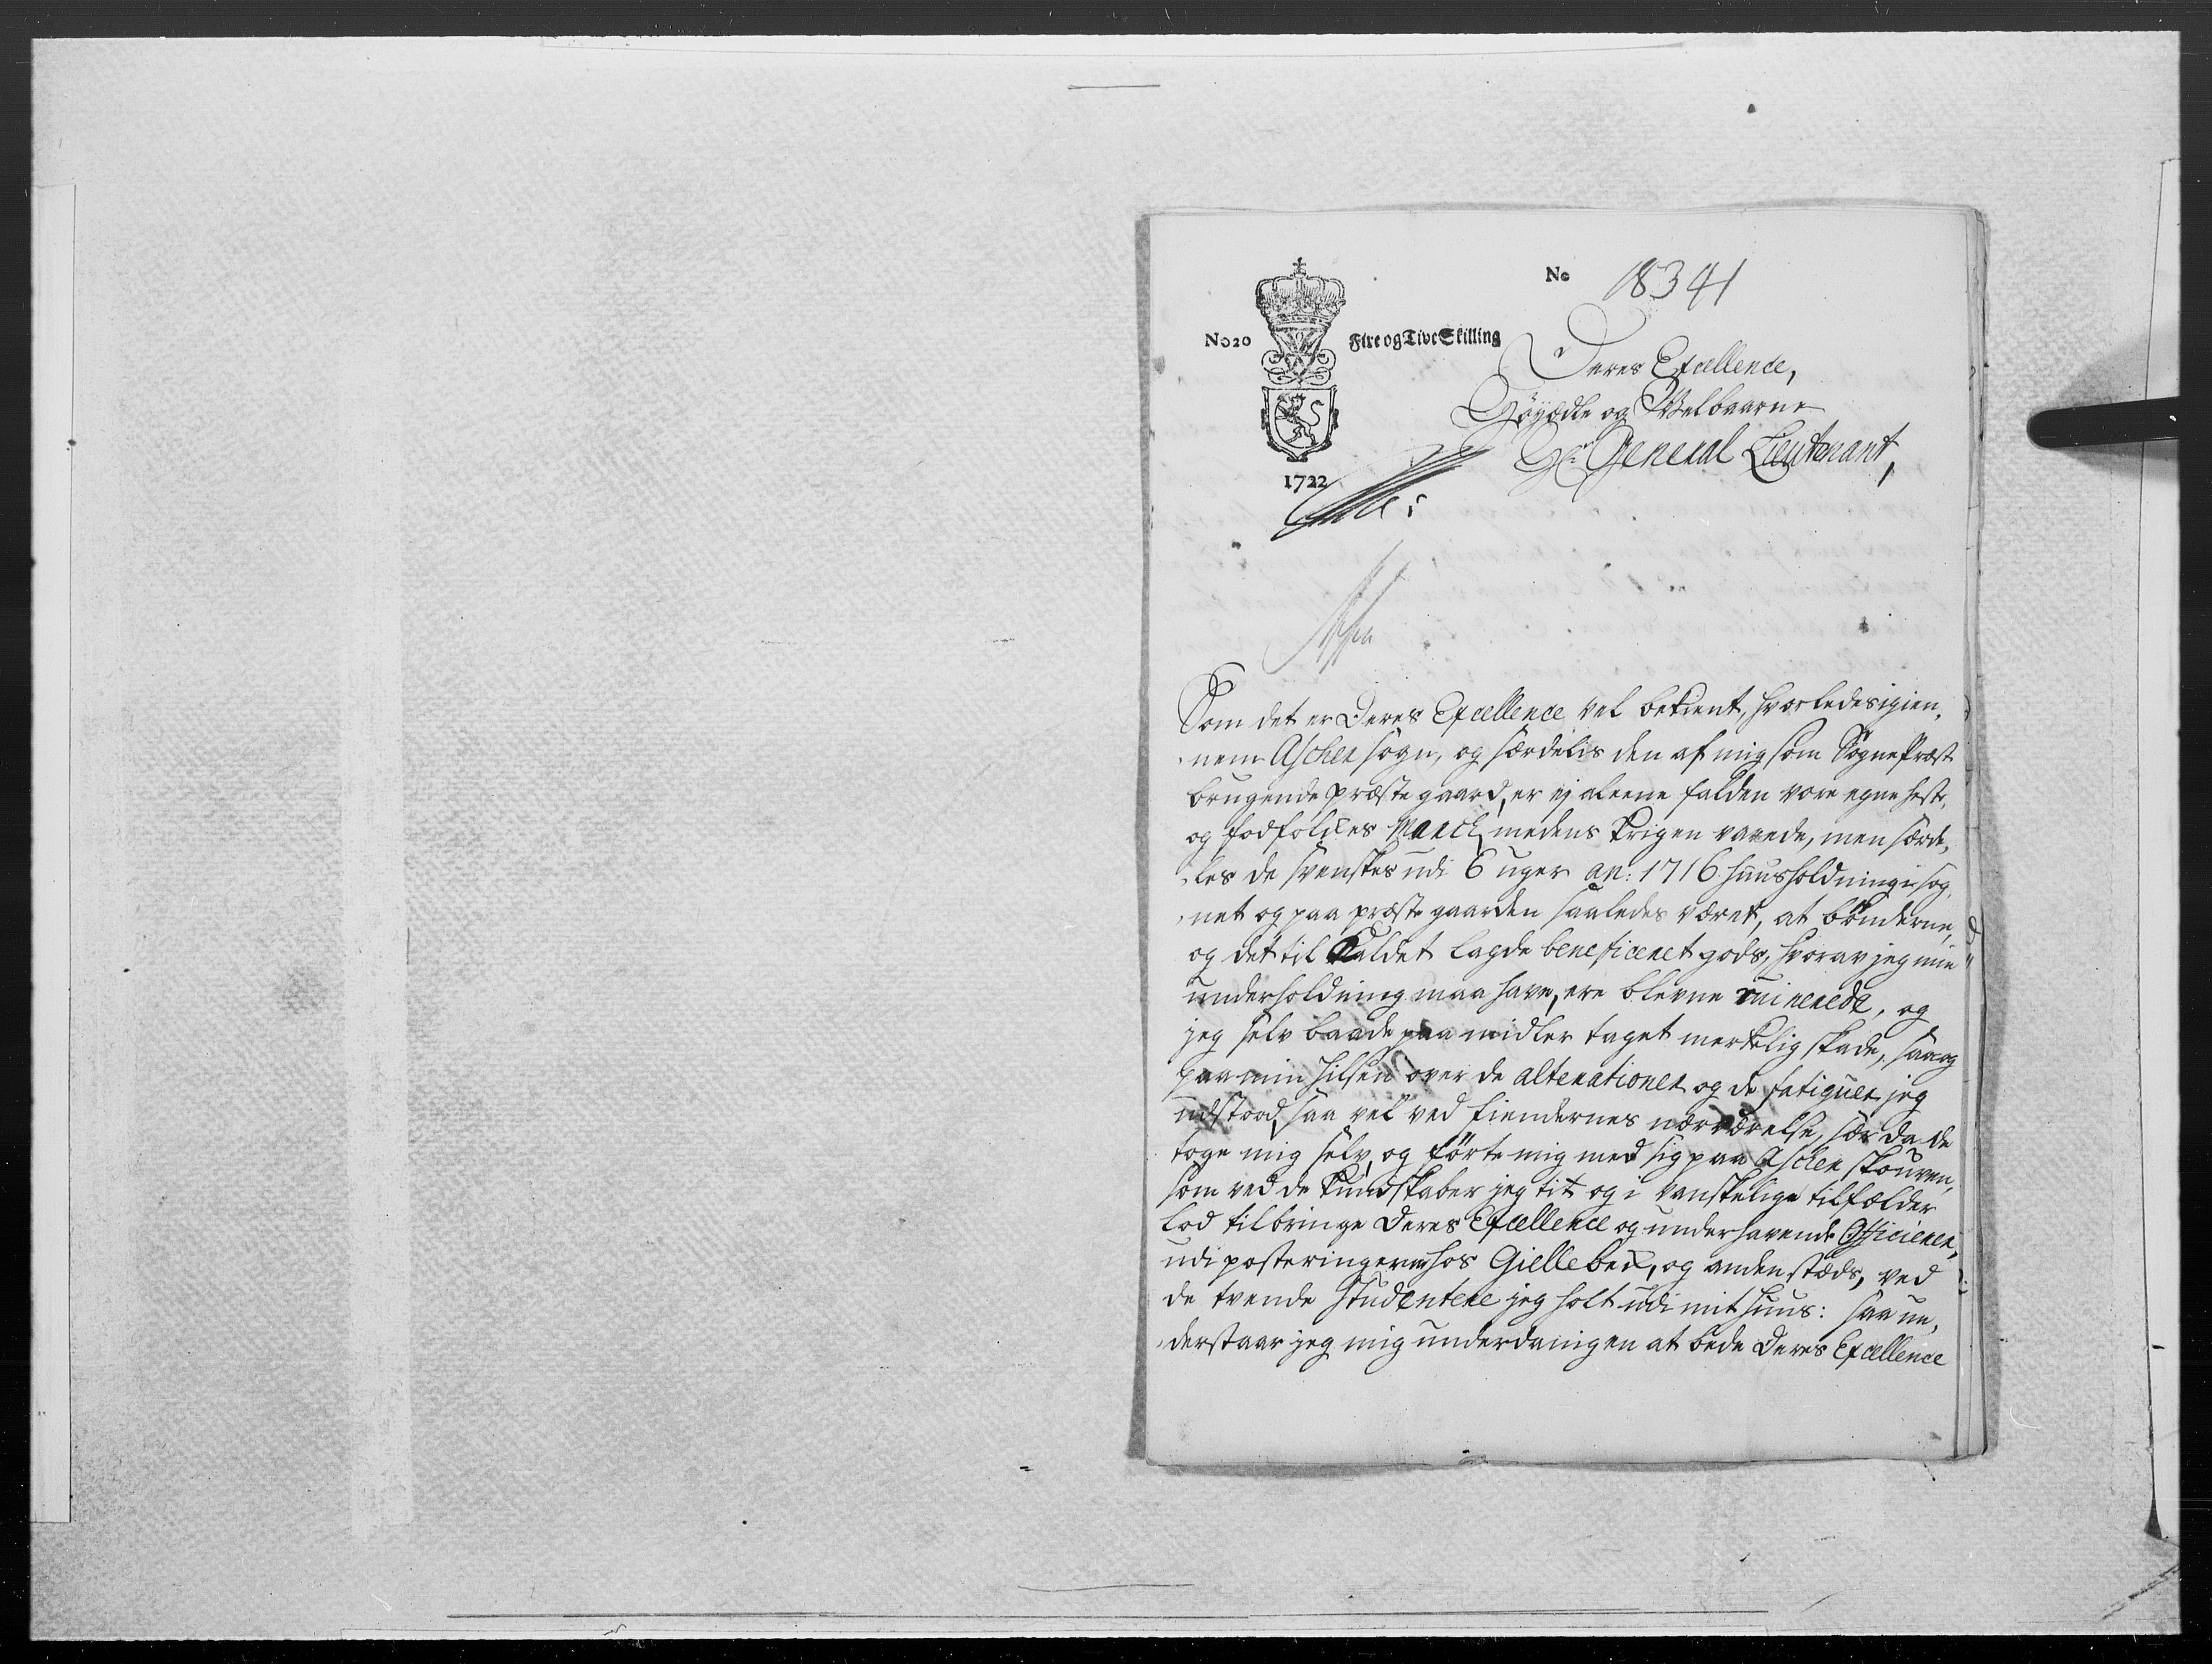 No 18341
No 20 Fire og Tive Skilling
1722
Deres Excellence,
Höyædle og Welbaarne
Hr. General Lieutenant,
Som det er Deres Excellence vel bekient, hvorledes igien,
nem Ascher sogn, og særdelis den af mig som Sogne Præst
brugende præste gaard, er ej aleene falden vore egne heste,
og fodfolckes March, medens Krigen varede, men særde,
les de svenskes udi 6 uger an: 1716 huusholdning i sog,
net og paa præste gaarden saaledes været, at bönderne,
og det til Kaldet lagde beneficeret gods, hvorav jeg min
underholdning maa have, ere blevne ruinerede, og
jeg selv baade paa midler taget merkelig skade, saa og
paa min hilsen over de alterationer og de fatiguer jeg
udstood, saa vel ved fiendernes nærværelse, sær da de
toge mig selv, og förte mig med sig paa Ascher skouven,
som ved de kundskaber jeg tit og i vanskelige tilfælder
lod tilbringe Deres Excellence og underhavende Officierer,
udi posteringerne hos Gillebeck, og andenstæds, ved
de tvende Studentere jeg holt udi mit huus: saa un,
derstaar jeg mig underdanigen at bede Deres Excellence